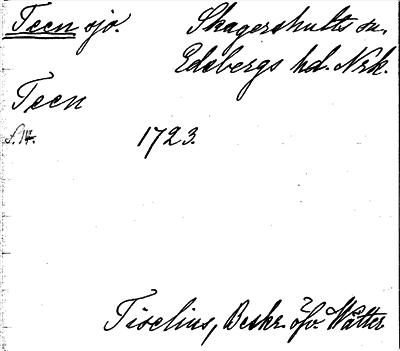 Teen sjö. Skagershults sn.
Edsbergs hd. Nrk.
Teen
1723.
Tiselius, Beskr. öfv. Wätter